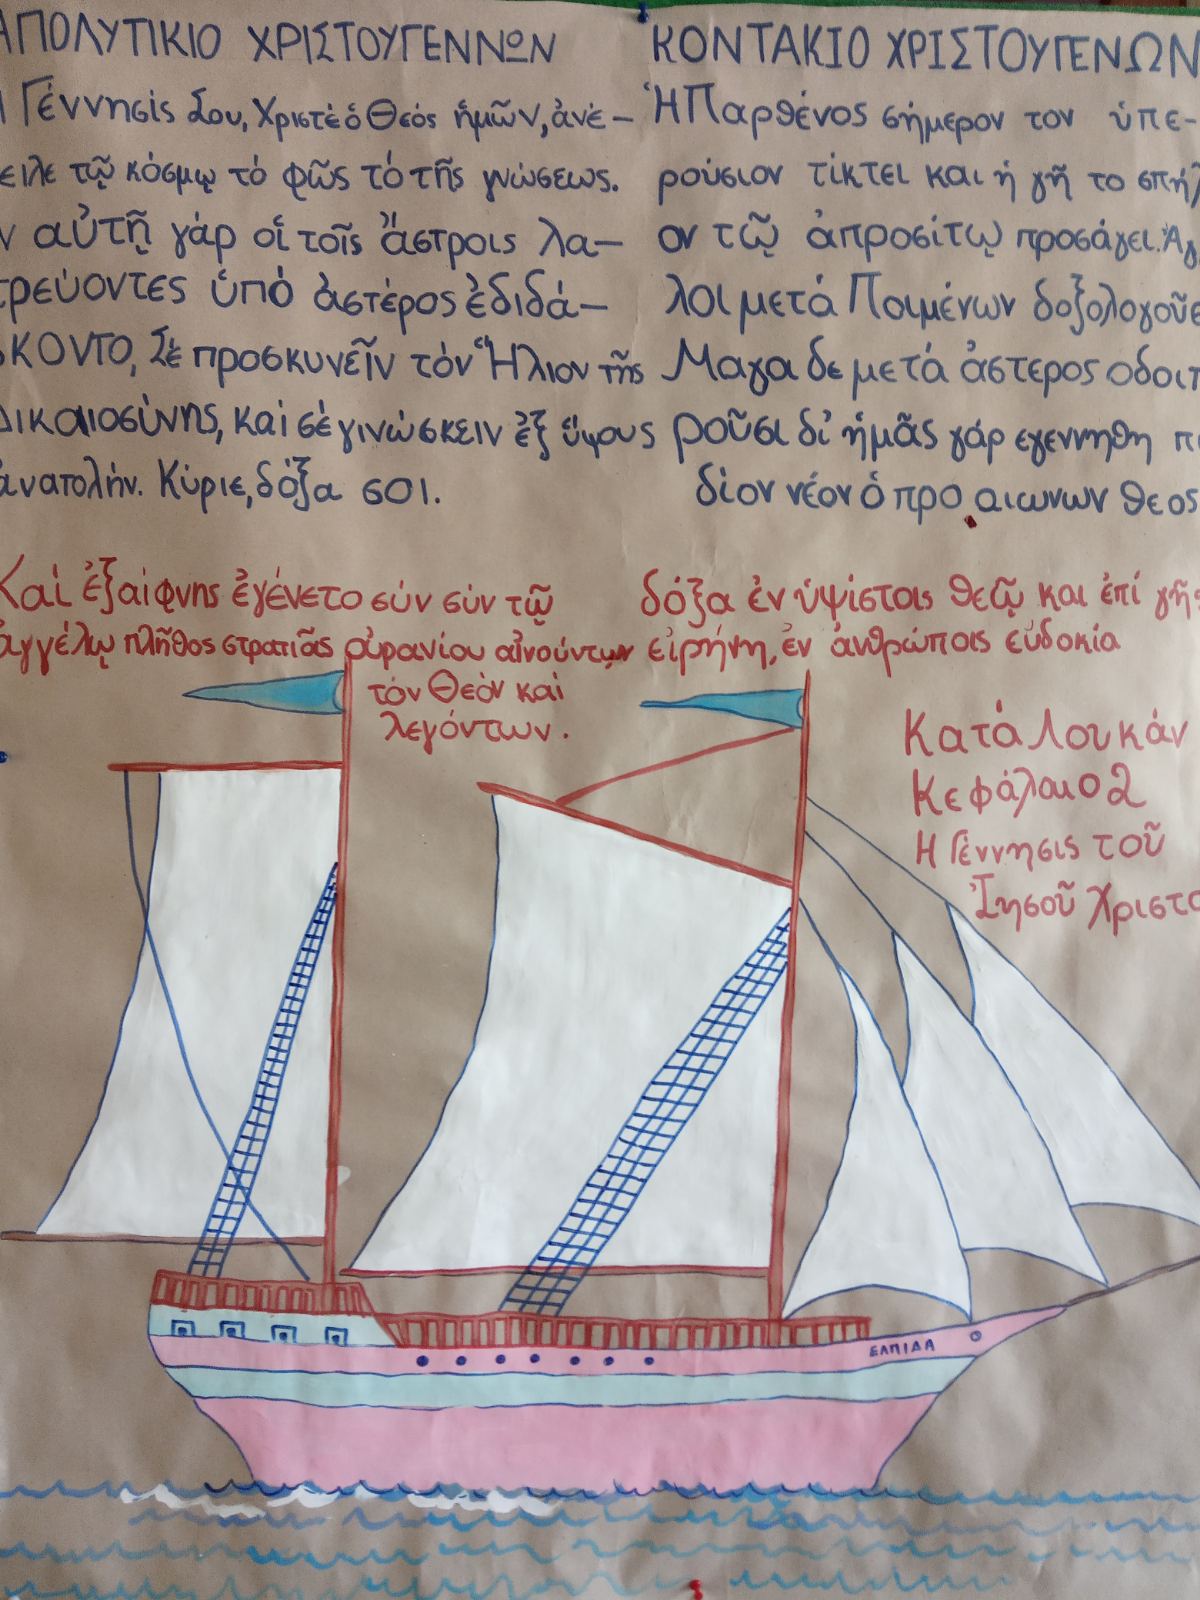 ΑΠΟΛΥΤΙΚΙΟ ΧΡΙΣΤΟΥΓΕΝΝΩΝ
Η Γέννησίς Σου, Χριστὲ ὁ Θεός ἡμῶν, ἀνέ-
ειλε τῷ κόσμῳ τό φῶς τό τῆς γνώσεως.
ν αὐτῇ γάρ οἱ τοῖς ἄστροις λα-
τρεύοντες ὑπό ἀστέρος ἐδιδά-
σΚΟΝΤΟ, Σὲ προσκυνεῖν τόν Ἥλιον τῆς
Δικαιοσύνης, καί σέ γινώσκειν ἐξ ὕψους
ἀνατολήν. Κύριε, δόξα σοι.
ΚΟΝΤΑΚΙΟ ΧΡΙΣΤΟΥΓΕΝΩΝ
Ἡ Παρθένος σήμερον τον ὑπε-
ρούσιον τίκτει και ἡ γῆ το σπήλ
ον τῷ ἀπροσίτῳ προσάγει. Ἀγ
λοι μετά Ποιμένων δοξολογοῦσ
Μαγα δε μετά ἀστερος οδοιπ
ροῦσι δι' ἡμᾶς γάρ εγεννηθη πα
δίον νέον ὁ προ αιωνων θεος
Καί ἐξαίφνης ἐγένετο σύν σύν τῷ
ἀγγέλῳ πλῆθος στρατιᾶς οὐρανίου αἰνούντων
τόν Θεὸν καί
λεγόντων.
δόξα ἐν ὑψίστοις θεῷ και ἐπί γῆς
εἰρήνη, ἐν ἀνθρώποις εὐδοκία
Κατά Λουκάν
Κεφάλαιο 2
Η Γέννησις τοῦ
Ἰησοῦ Χριστο
ΕΛΠΙΔΑ